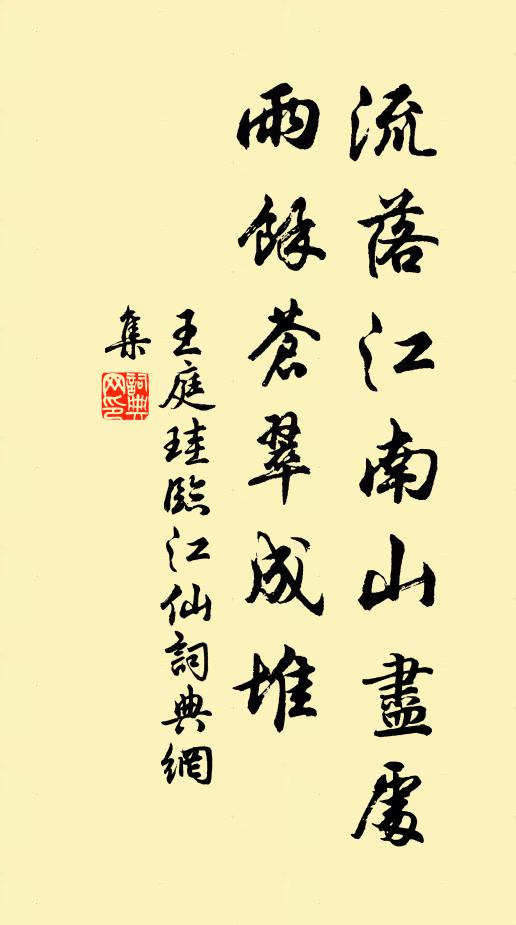 流落江南山盡處
雨餘蒼翠成堆
王庭珪臨江仙詞典網
集
詞典網印